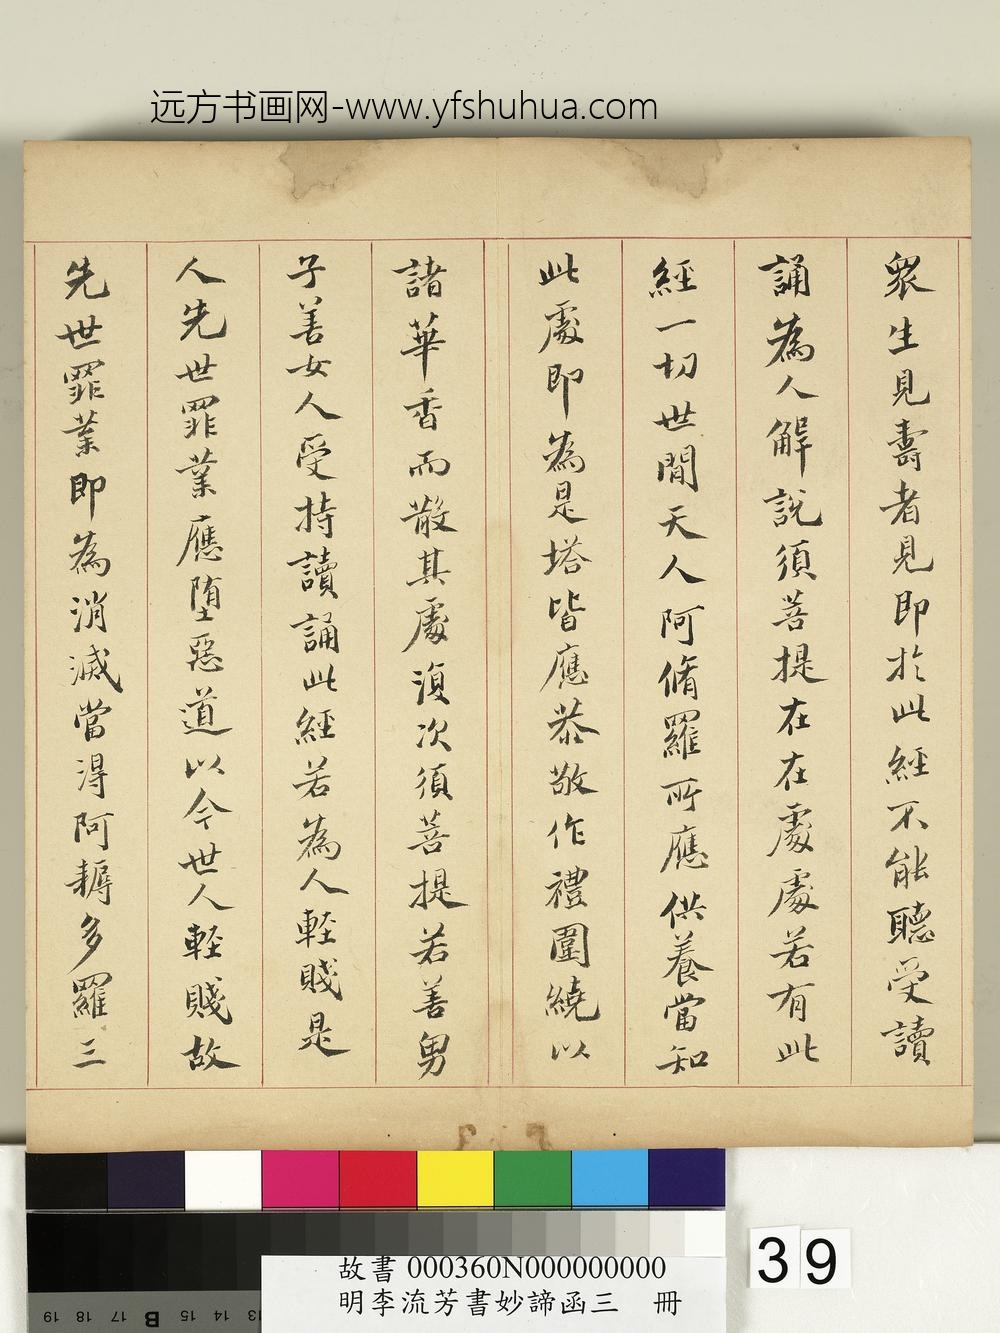 远方书画网-www.yfshuhua.com
眾生見壽者見即於此經不能聽受讀
誦為人解說須菩提在在處處若有此
經一切世間天人阿脩羅所應供養當知
此處即為是塔皆應恭敬作禮圍繞以
諸華香而散其處復次須菩提若善男
子善女人受持讀誦此經若為人輕賤是
人先世罪業應墮惡道以今世人輕賤故
先世罪業即為消滅當得阿耨多羅三
39
故書 000360N000000000
明李流芳書妙諦函三 冊
B 15 16 17 18 19
13 14